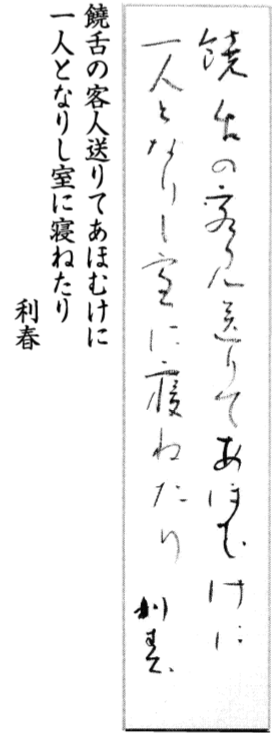 饒舌の客人送りてあほむけに
一人となりし室に寝ねたり
利春
饒舌の客人送りてあほむけに
一人となりし室に寝ねたり
利春